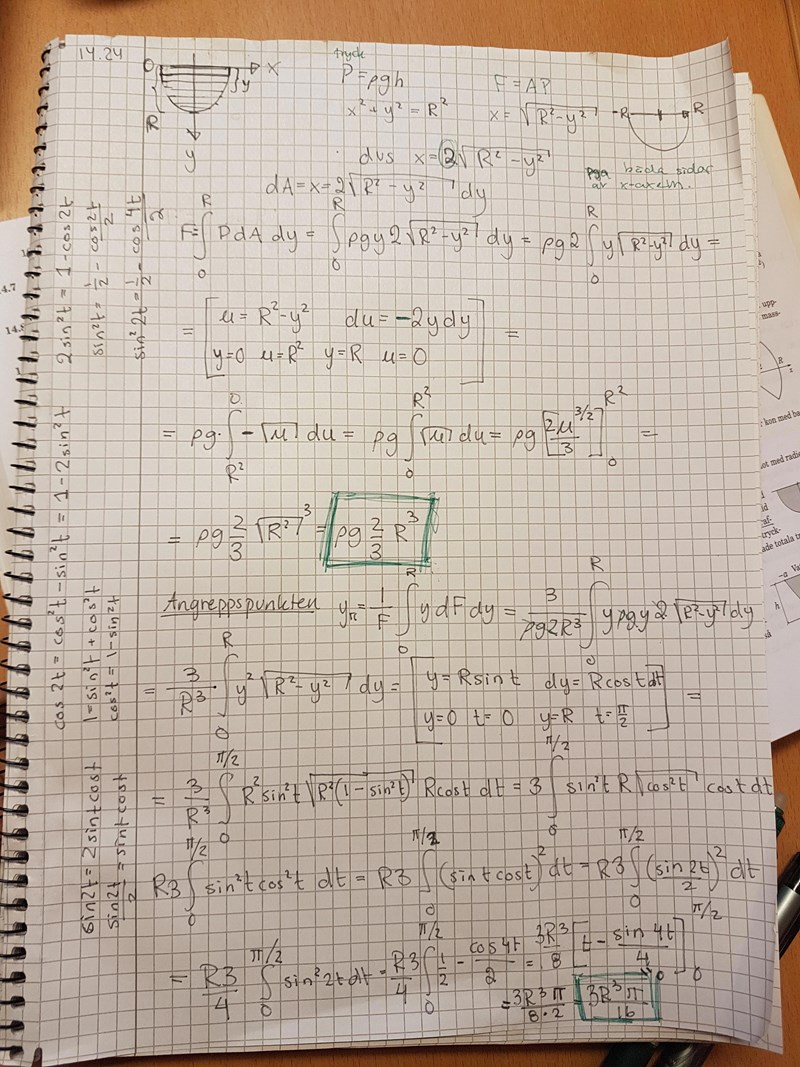 14.24
O x y R y
tryck
P = ρgh F = AP
x² + y² = R² x = √(R²-y²) -R R
dvs x = 2√(R²-y²)
pga båda sidor
av x-axeln.
dA = x = 2√(R²-y²) dy
F = ∫₀ᴿ P dA dy = ∫₀ᴿ ρgy2√(R²-y²) dy = ρg2 ∫₀ᴿ y√(R²-y²) dy =
= [u = R²-y² du = -2y dy
y=0 u=R² y=R u=0] =
= ρg · ∫_{R²}^{0} -√u du = ρg ∫₀^{R²} √u du = ρg [2u^{3/2}/3]₀^{R²} =
= ρg 2/3 √(R²)³ = ρg 2/3 R³
Angreppspunkten y_n = 1/F ∫₀ᴿ y dF dy = 3/(ρg2R³) ∫₀ᴿ yρgy2√(R²-y²) dy
= 3/R³ ∫₀ᴿ y²√(R²-y²) dy = [y = Rsin t dy = Rcos t dt
y=0 t=0 y=R t=π/2] =
= 3/R³ ∫₀^{π/2} R²sin²t √(R²(1-sin²t)) Rcost dt = 3 ∫₀^{π/2} sin²t R√(cos²t) cost dt
R3 ∫₀^{π/2} sin²t cos²t dt = R3 ∫₀^{π/2} (sin t cost)² dt = R3 ∫₀^{π/2} (sin 2t/2)² dt
= R3/4 ∫₀^{π/2} sin²2t dt = R3/4 ∫₀^{π/2} 1/2 - cos4t/2 = 3R³/8 [t - sin 4t/4]₀^{π/2}
= 3R³π/(8·2) = 3R³π/16
2sin²t = 1-cos2t
sin²t = 1/2 - cos2t/2
sin²2t = 1/2 - cos4t/2
cos2t = cos²t - sin²t = 1-2sin²t
1 = sin²t + cos²t
cos²t = 1-sin²t
sin2t = 2sin t cost
sin2t/2 = sin t cost